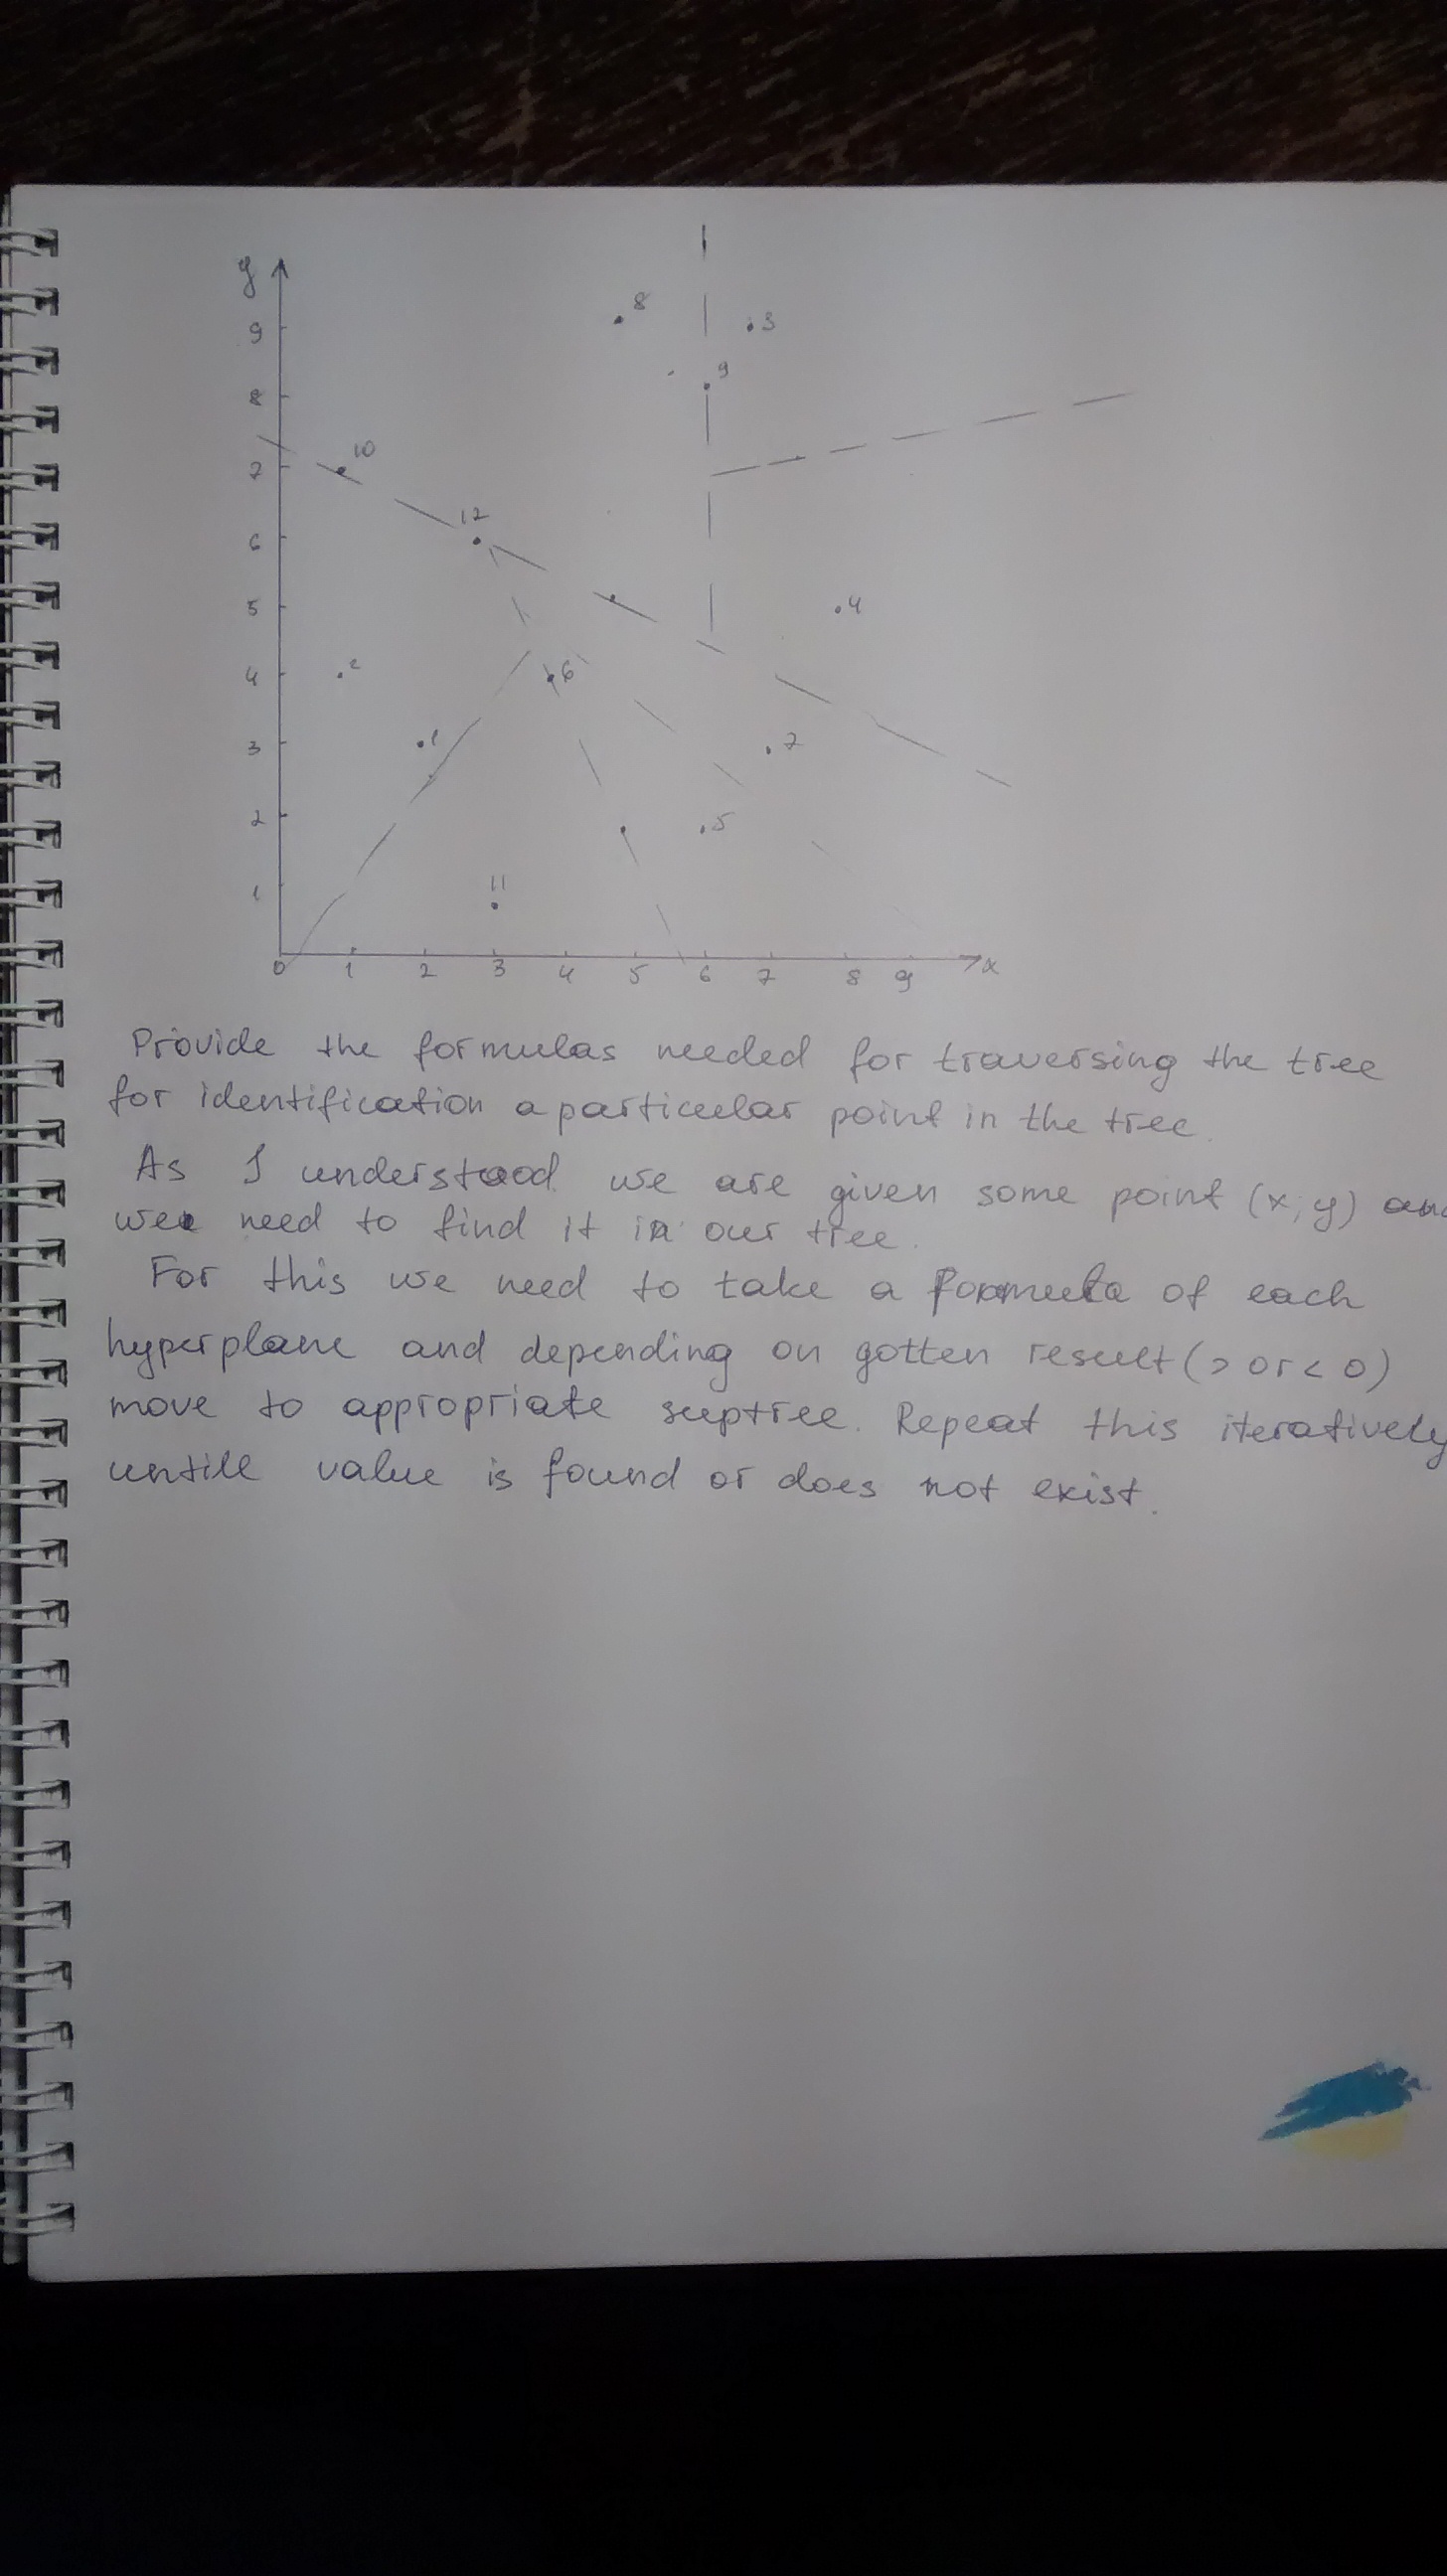 y
8
9
3
9
8
10
7
12
6
5
4
2
4
6
1
3
7
2
5
11
1
0 1 2 3 4 5 6 7 8 9 x
Provide the formulas needed for traversing the tree
for identification a particular point in the tree.
As I understood we are given some point (x; y) and
wee need to find it in our tree.
For this we need to take a formula of each
hyperplane and depending on gotten result (> or < 0)
move to appropriate suptree. Repeat this iteratively
untill value is found or does not exist.